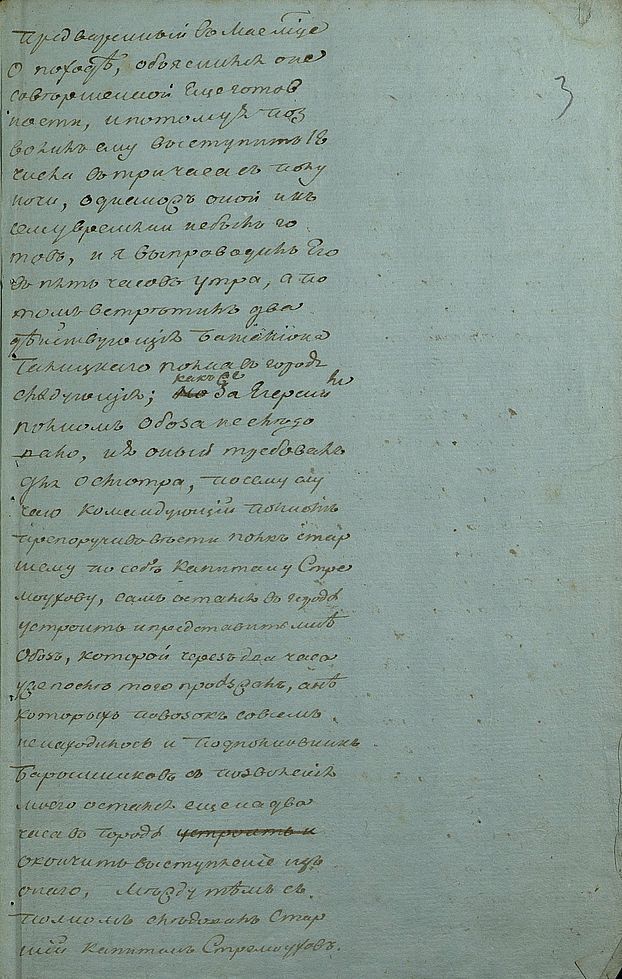 3
предваренный въ мае мце
О походѣ, объяснился о не
совершенной Еще готов
ности, и потому я поз
волилъ ему выступить 18
числа въ три часа съ полу
ночи, однакожъ оной и къ
сему времени небылъ го
товъ, и я выпроводилъ Его
въ пять часовъ утра, а по
томъ встрѣтилъ два
дѣйствующія Баталіона
полка въ городъ
слѣдующія; какъ же
но За Егерскимъ
полкомъ Обоза не слѣдо
вало, и я оный требовалъ
для осмотра, по сему слу
чаю командующій полкомъ
препоручивъ вѣсти полкъ стар
шему по себѣ Капитану Стре
моухову, самъ остался въ городѣ
устроить и представить мнѣ
Обозъ, которой черезъ два часа
уже послѣ того провѣзенъ, а нѣ
которыхъ повозокъ совсемъ
не находилось и Подполковникъ
съ позволенія
моего остался еще на два
часа въ городѣ устроить и
окончить выступленіе изъ
онаго, Между тѣмъ съ
полкомъ слѣдовалъ Стар
шій Капитанъ Стремоуховъ.